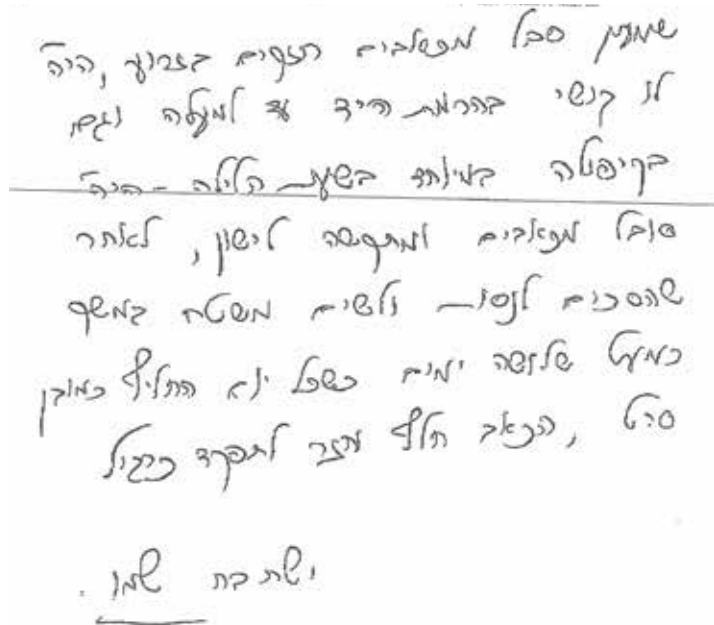 שמעון סבל מכאבים חזקים בזרוע, היה
לו קושי בהרמת היד עד למעלה וגם
בקיפולה במיוחד בשעת הלילה - היה
סובל מכאבים ומתקשה לישון, לאחר
שהסכים לנסות ולשים משטח במשך
כמעט שלושה ימים כשכל יום החליף כמובן
סרט, הכאב חלף וחזר לתפקד כרגיל
ישתבח שמו.